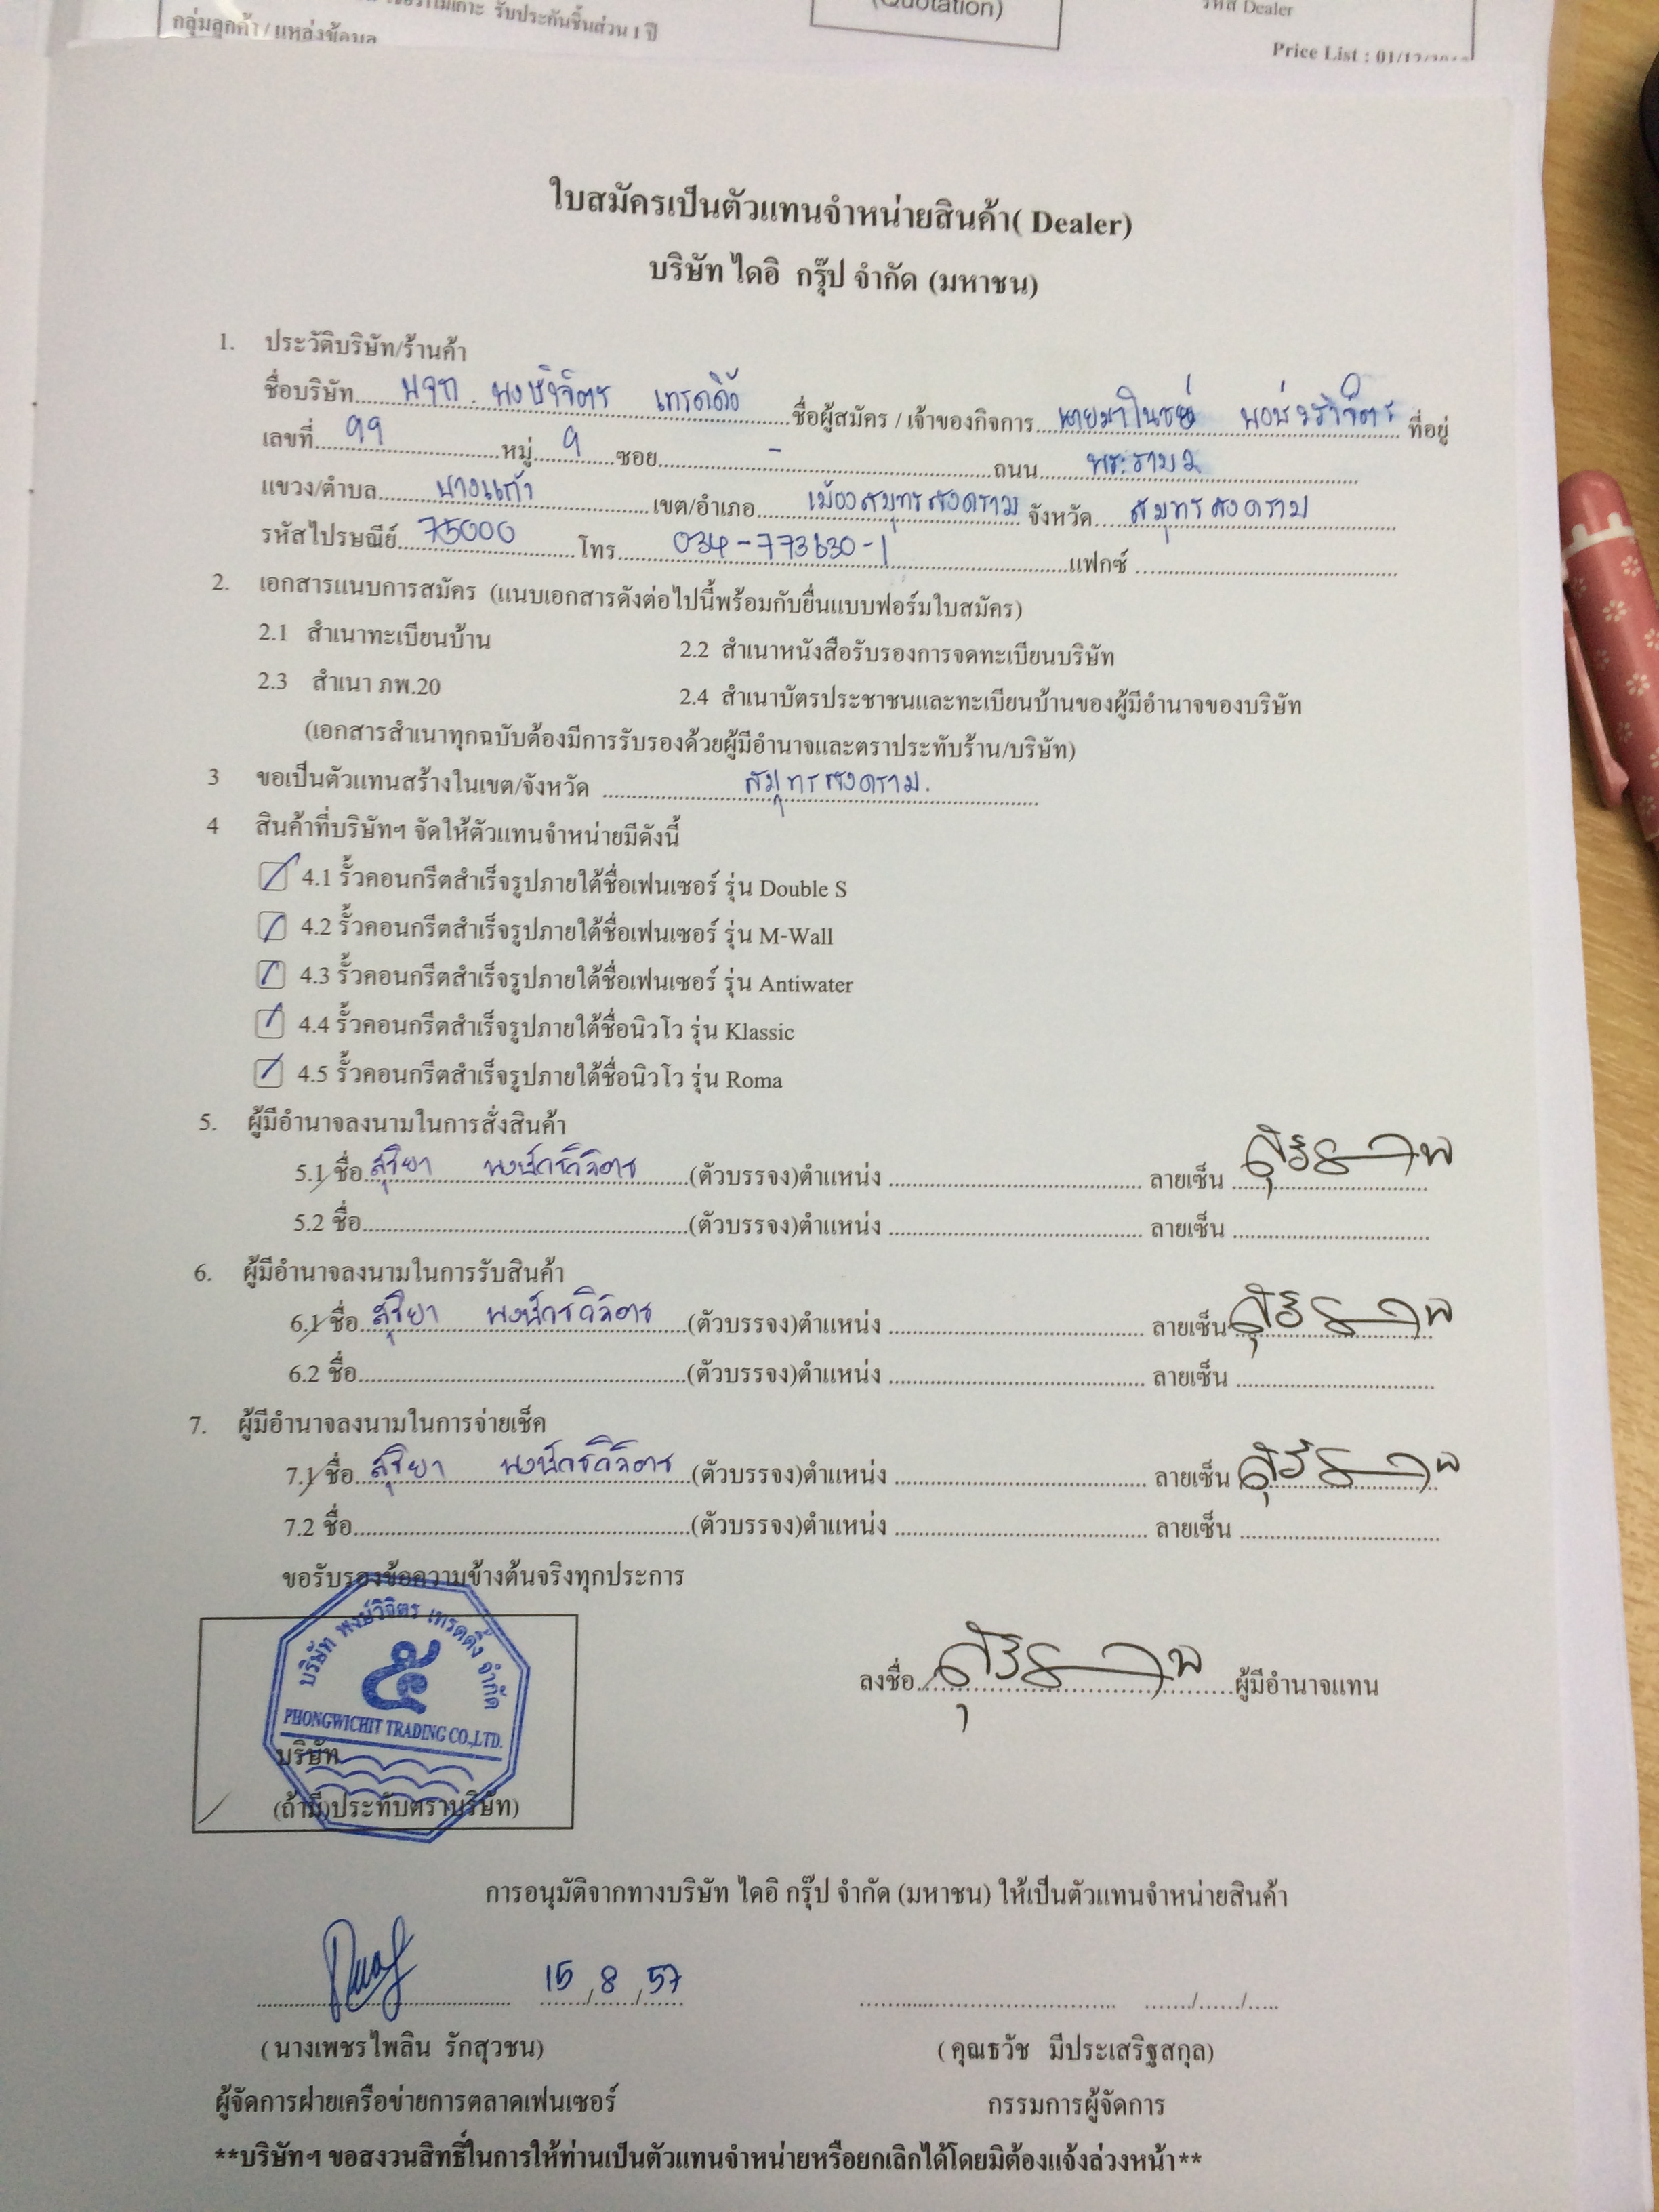 รับประกันชิ้นส่วน 1 ปี
(Quotation)
รหัส Dealer
กลุ่มลูกค้า / แหล่งข้อมูล
Price List : 01/12/
ใบสมัครเป็นตัวแทนจำหน่ายสินค้า( Dealer)
บริษัท ไดอิ กรุ๊ป จำกัด (มหาชน)
1. ประวัติบริษัท/ร้านค้า
ชื่อบริษัท..... บจก. พงษ์วิจิตร เทรดดิ้ง .....ชื่อผู้สมัคร / เจ้าของกิจการ..... ที่อยู่
เลขที่.... 99 ....หมู่.... 9 ....ซอย.... - ....ถนน.... พระราม 2
แขวง/ตำบล.... บางแก้ว ....เขต/อำเภอ.... เมืองสมุทรสงคราม จังหวัด.... สมุทรสงคราม
รหัสไปรษณีย์.... 75000 ....โทร.... 034-773630-1 ....แฟกซ์ ....
2. เอกสารแนบการสมัคร (แนบเอกสารดังต่อไปนี้พร้อมกับยื่นแบบฟอร์มใบสมัคร)
2.1 สำเนาทะเบียนบ้าน 2.2 สำเนาหนังสือรับรองการจดทะเบียนบริษัท
2.3 สำเนา ภพ.20 2.4 สำเนาบัตรประชาชนและทะเบียนบ้านของผู้มีอำนาจของบริษัท
(เอกสารสำเนาทุกฉบับต้องมีการรับรองด้วยผู้มีอำนาจและตราประทับร้าน/บริษัท)
3 ขอเป็นตัวแทนสร้างในเขต/จังหวัด .... สมุทรสงคราม.
4 สินค้าที่บริษัทฯ จัดให้ตัวแทนจำหน่ายมีดังนี้
4.1 รั้วคอนกรีตสำเร็จรูปภายใต้ชื่อเฟนเซอร์ รุ่น Double S
4.2 รั้วคอนกรีตสำเร็จรูปภายใต้ชื่อเฟนเซอร์ รุ่น M-Wall
4.3 รั้วคอนกรีตสำเร็จรูปภายใต้ชื่อเฟนเซอร์ รุ่น Antiwater
4.4 รั้วคอนกรีตสำเร็จรูปภายใต้ชื่อนิวโว รุ่น Klassic
4.5 รั้วคอนกรีตสำเร็จรูปภายใต้ชื่อนิวโว รุ่น Roma
5. ผู้มีอำนาจลงนามในการสั่งสินค้า
5.1 ชื่อ.... สุริยา ....(ตัวบรรจง)ตำแหน่ง .... ลายเซ็น ....
5.2 ชื่อ....(ตัวบรรจง)ตำแหน่ง .... ลายเซ็น ....
6. ผู้มีอำนาจลงนามในการรับสินค้า
6.1 ชื่อ.... สุริยา ....(ตัวบรรจง)ตำแหน่ง .... ลายเซ็น ....
6.2 ชื่อ....(ตัวบรรจง)ตำแหน่ง .... ลายเซ็น ....
7. ผู้มีอำนาจลงนามในการจ่ายเช็ค
7.1 ชื่อ.... สุริยา ....(ตัวบรรจง)ตำแหน่ง .... ลายเซ็น ....
7.2 ชื่อ....(ตัวบรรจง)ตำแหน่ง .... ลายเซ็น ....
ขอรับรองข้อความข้างต้นจริงทุกประการ
บริษัท พงษ์วิจิตร เทรดดิ้ง จำกัด
๕
PHONGWICHIT TRADING CO.,LTD.
ลงชื่อ....ผู้มีอำนาจแทน
บริษัท
(ถ้ามี)ประทับตราบริษัท)
การอนุมัติจากทางบริษัท ไดอิ กรุ๊ป จำกัด (มหาชน) ให้เป็นตัวแทนจำหน่ายสินค้า
15/8/57 ....../....../.....
( นางเพชรไพลิน รักสุวชน) ( คุณธวัช มีประเสริฐสกุล)
ผู้จัดการฝ่ายเครือข่ายการตลาดเฟนเซอร์ กรรมการผู้จัดการ
**บริษัทฯ ขอสงวนสิทธิ์ในการให้ท่านเป็นตัวแทนจำหน่ายหรือยกเลิกได้โดยมิต้องแจ้งล่วงหน้า**